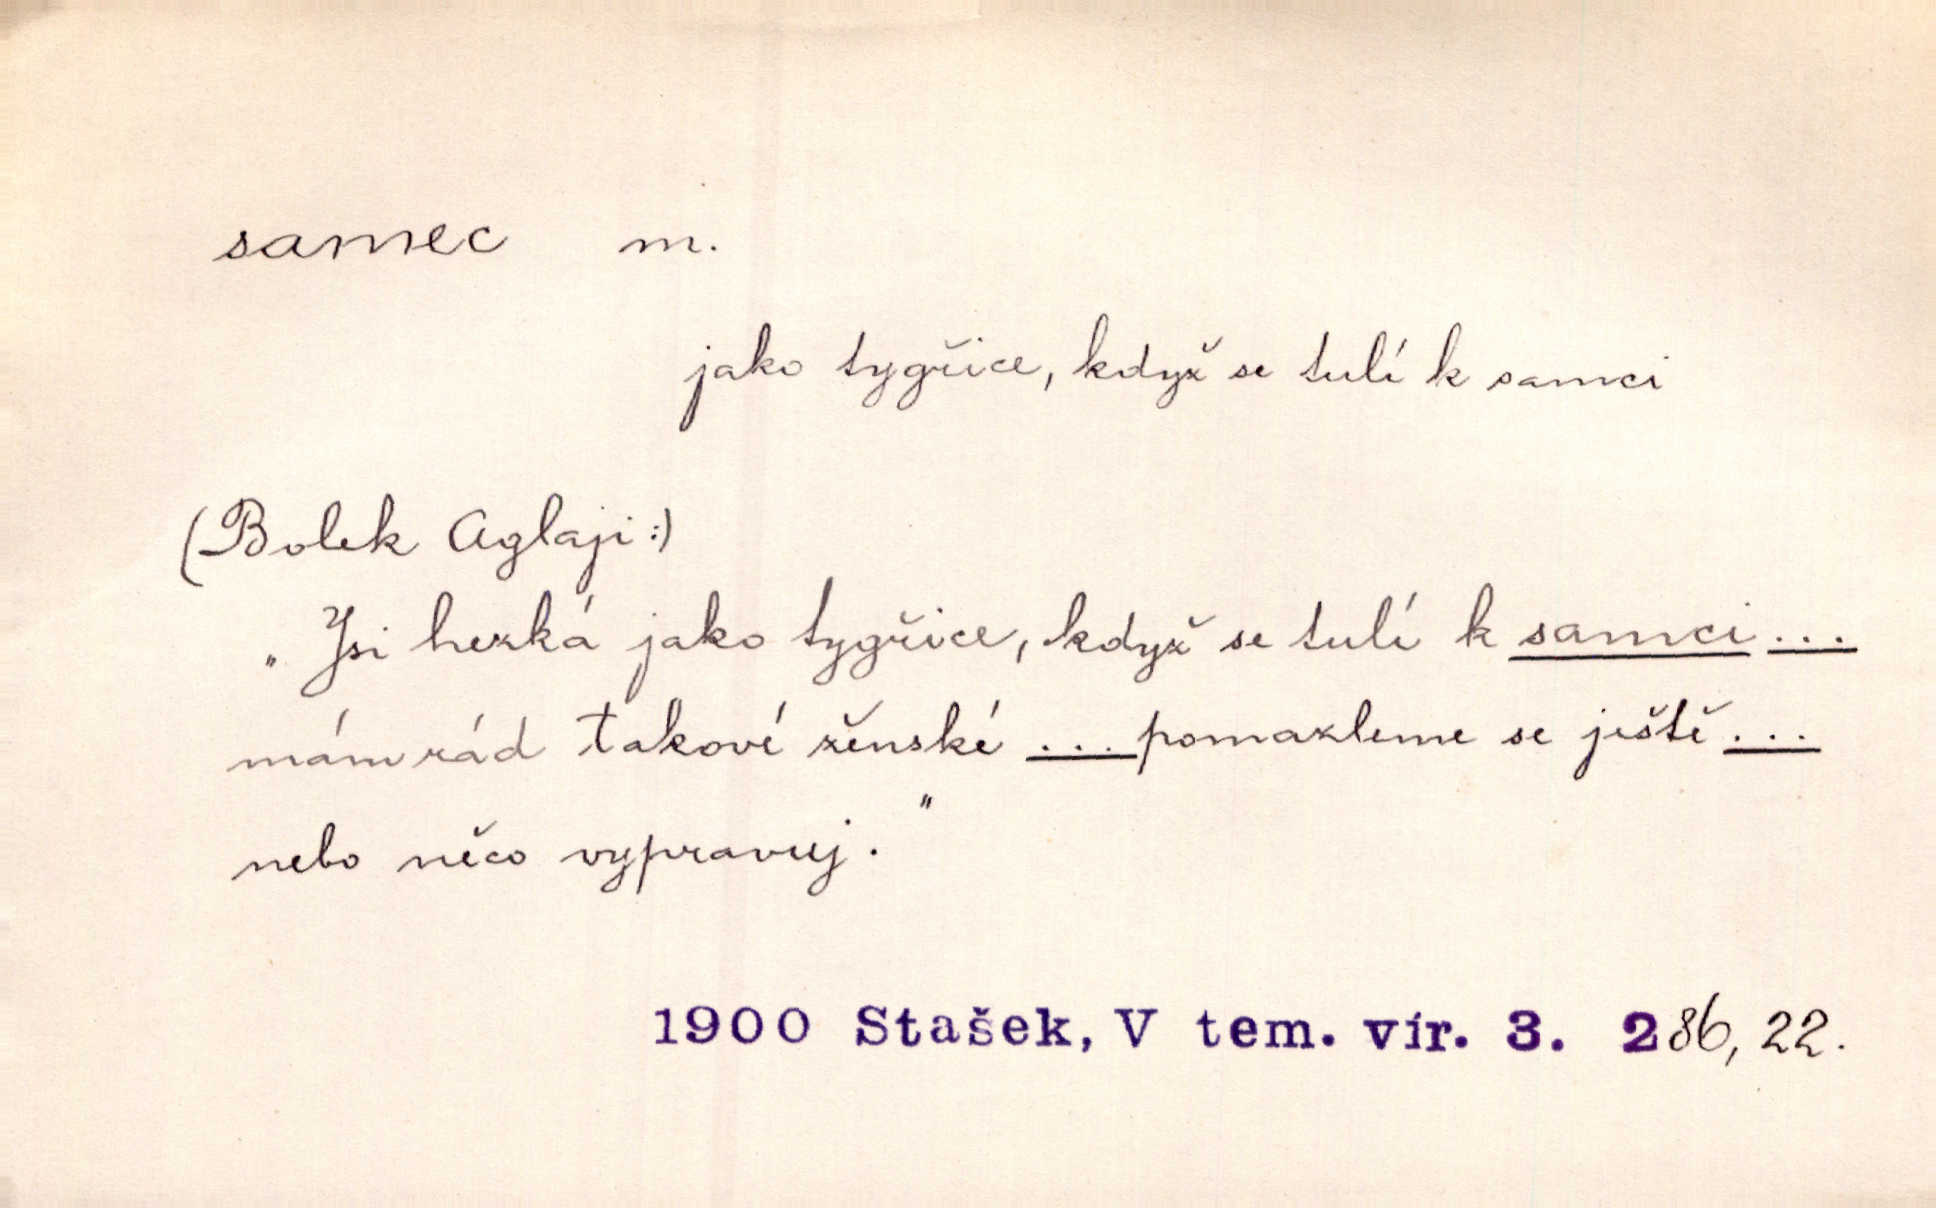 samec m.
jako tygřice, když se tulí k samci
(Bolek Aglaji:)
„Jsi hezká jako tygřice, když se tulí k samci ...
mám rád takové ženské ... pomazleme se ještě ...
nebo něco vypravuj."
1900 Stašek, V tem. vír. 3. 286, 22.